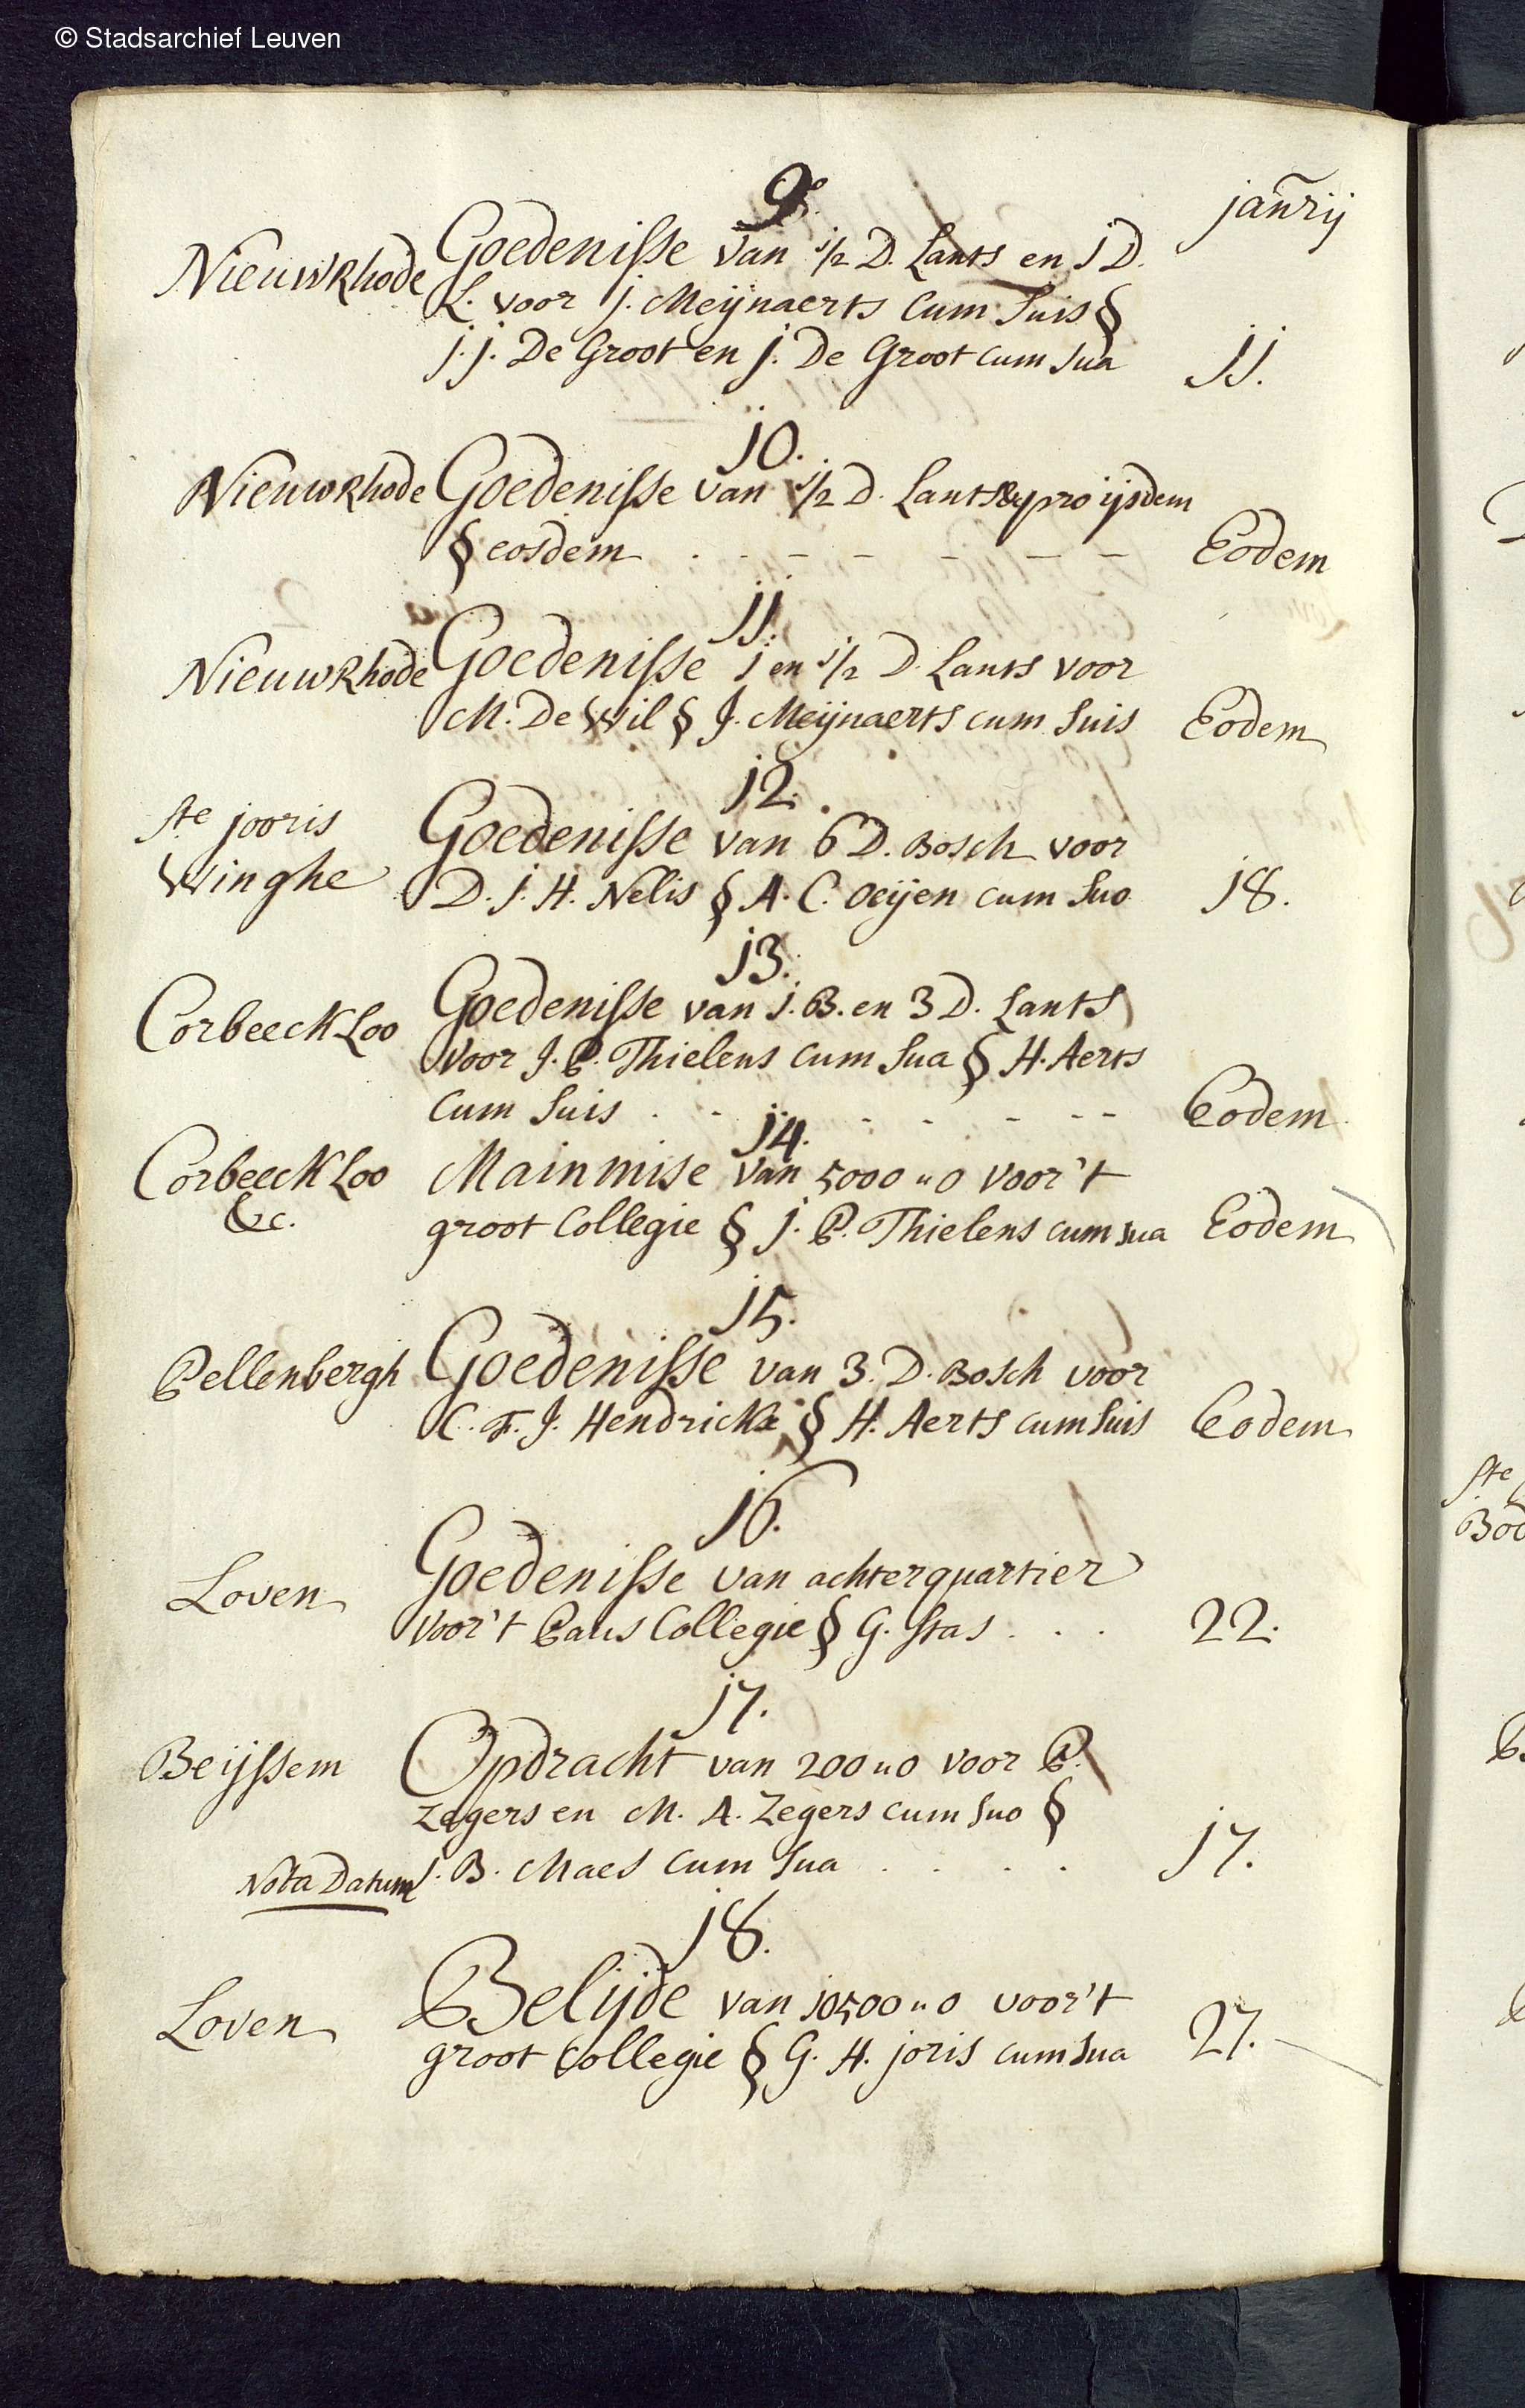 © Stadsarchief Leuven
9.
jañrij
Nieuwrhode Goedenisse van ½ D. Lants en j D.
L. voor j. Meijnaerts Cum Suis §
j. j. De Groot en j. De Groot cum sua jj.
j0.
Nieuwrhode Goedenisse van ½ D. Lants &c pro ijsdem
§ eosdem . - - - - - - Eodem
jj.
Nieuwrhode Goedenisse j en ½ D. Lants voor
M. De Wil § J. Meijnaerts cum Suis Eodem
j2.
Ste jooris Goedenisse van 6 D. Bosch voor
Winghe D. j. H. Nelis § A. C. Oeijen cum Suo j8.
j3.
Corbeeck Loo Goedenisse van j. B. en 3 D. Lants
voor J. P. Thielens Cum Sua § H. Aerts
Cum Suis . - - - - - - Eodem
j4.
Corbeeck Loo Mainmise van 5000 " 0 voor 't
&c. groot Collegie § j. P. Thielens cum sua Eodem
j5.
Pellenbergh Goedenisse van 3. D. Bosch voor
C. F. J. Hendrickx § H. Aerts cum Suis Eodem
j6.
Loven Goedenisse van achterquartier
voor 't Paus Collegie § G. Stas . . . 22.
j7.
Beijssem Opdracht van 200 " 0 voor P.
Zegers en M. A. Zegers cum Suo §
Nota Datum j. B. Maes Cum Sua . . . . j7.
j8.
Loven Belijde van j0500 " 0 voor 't
groot Collegie § G. H. joris cum sua 27.
Ste